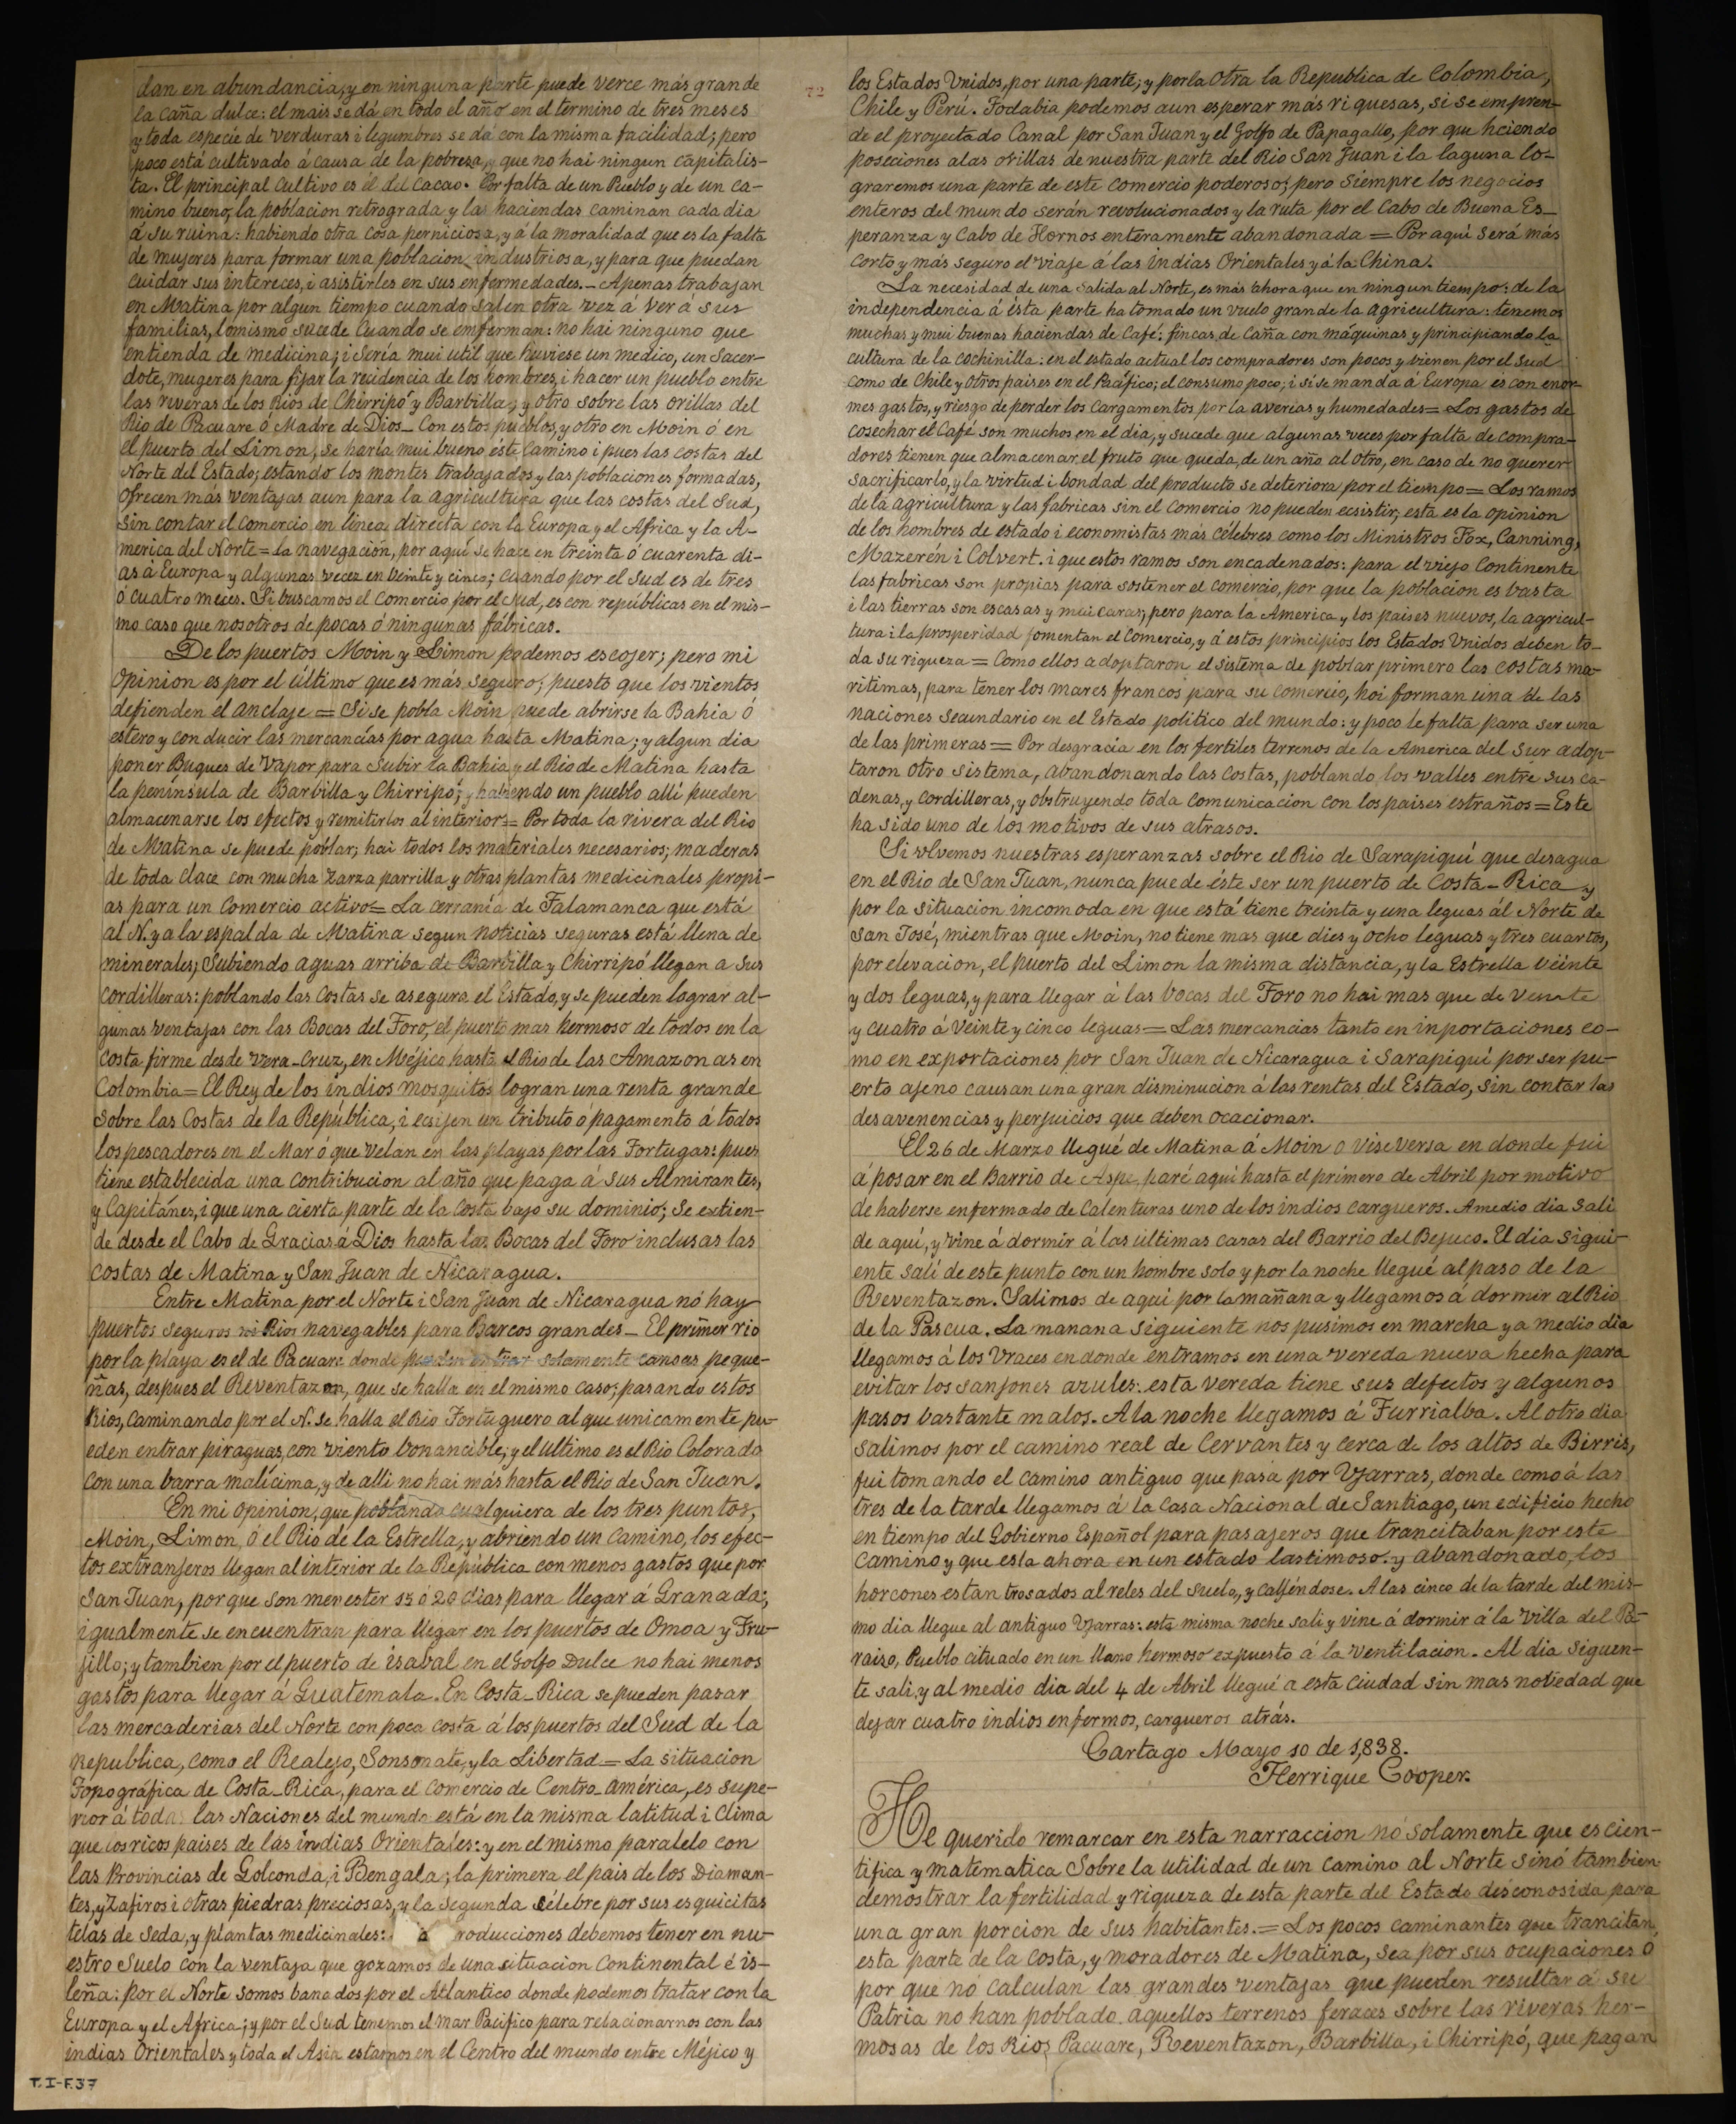 dan en abundancia, y en ninguna parte puede verce más grande
la caña dulce: el mais se dá en todo el año en el termino de tres meses
y toda especie de verduras i legumbres se da con la misma facilidad; pero
poco está cultivado á causa de la pobresa, y que no hai ningun capitalis-
ta. El principal cultivo es él del cacao. Por falta de un Pueblo y de un ca-
mino bueno, la poblacion retrograda y las haciendas caminan cada dia
á su ruina: habiendo otra cosa perniciosa, y á la moralidad que es la falta
de mujeres para formar una poblacion industriosa, y para que puedan
cuidar sus intereces, i asistirles en sus enfermedades. - Apenas trabajan
en Matina por algun tiempo cuando salen otra vez á ver á sus
familias, lo mismo sucede cuando se emferman: no hai ninguno que
entienda de medicina; i sería mui util que huviese un medico, un Sacer-
dote, mugeres para fijar la recidencia de los hombres, i hacer un pueblo entre
las riveras de los Rios de Chirripó y Barbilla; y otro sobre las orillas del
Rio de Pacuare ó Madre de Dios_ Con estos pueblos, y otro en Moin ó en
el puerto del Limon, se haría mui bueno éste camino i pues las costas del
Norte del Estado; estando los montes trabajados y las poblaciones formadas,
ofrecen más ventajas aun para la agricultura que las costas del Sud,
sin contar el comercio en linea directa con la Europa y el Africa y la A-
merica del Norte = La navegación, por aquí se hace en treinta ó cuarenta di-
as á Europa y algunas vecez en veinte y cinco; cuando por el Sud es de tres
ó cuatro meses. Si buscamos el Comercio por el Sud, es con repúblicas en el mis-
mo caso que nosotros de pocas ó ningunas fábricas.
De los puertos Moin y Limon podemos escojer; pero mi
opinion es por el último que es más seguro; puesto que los vientos
defienden el anclaje = Si se pobla Moin puede abrirse la Bahia ó
estero y conducir las mercancías por agua hasta Matina; y algun dia
poner Buques de Vapor para Subir la Bahia y el Rio de Matina hasta
la península de Barbilla y Chirripó; y habiendo un pueblo allí pueden
almacenarse los efectos y remitirlos al interior = Por toda la rivera del Rio
de Matina se puede poblar; hai todos los materiales necesarios; maderas
de toda clace con mucha Zarza parrilla y otras plantas medicinales propi-
as para un comercio activo = La cerranía de Talamanca que está
al N. y a la espalda de Matina segun noticias seguras está llena de
minerales; Subiendo aguas arriba de Barvilla y Chirripó llegan a sus
cordilleras: poblando las costas se asegura el Estado, y se pueden lograr al-
gunas ventajas con las Bocas del Toro, el puerto mas hermoso de todos en la
costa firme desde Vera-Cruz, en Méjico hasta el Rio de las Amazonas en
Colombia = El Rey de los indios mosquitos logran una renta grande
sobre las Costas de la República, i ecsijen un tributo ó pagamento á todos
los pescadores en el Mar ó que velan en las playas por las Tortugas: pues
tiene establecida una contribucion al año que paga á sus Almirantes,
y Capitánes, i que una cierta parte de la costa bajo su dominio; se extien-
de desde el Cabo de Gracias á Dios hasta las Bocas del Toro inclusas las
costas de Matina y San Juan de Nicaragua.
Entre Matina por el Norte i San Juan de Nicaragua nó hay
puertos seguros ni Rios navegables para Barcos grandes_ El primer rio
por la playa es el de Pacuare donde pueden entrar solamente canoas peque-
ñas, despues el Reventazon, que se halla en el mismo caso; pasando estos
Rios, caminando por el N. se halla el Rio Tortuguero al que unicamente pu-
eden entrar piraguas, con viento bonancible; y el ultimo es el Rio Colorado
con una barra malícima, y de alli no hai más hasta el Rio de San Juan.
En mi opinion, que poblando cualquiera de los tres puntos,
Moin, Limon, ó el Rio de la Estrella, y abriendo un camino, los efec-
tos extranjeros llegan al interior de la República con menos gastos que por
San Juan, por que son menester 15 ó 20 dias para llegar á Granada;
igualmente se encuentran para llegar en los puertos de Omoa y Tru-
jillo; y tambien por el puerto de isabal en el Golfo Dulce no hai menos
gastos para llegar á Guatemala. En Costa-Rica se pueden pasar
las mercaderias del Norte con poca costa á los puertos del Sud de la
republica, como el Realejo, Sonsonate, y la Libertad = La situacion
Topográfica de Costa-Rica, para el comercio de Centro-américa, es supe-
rior á todas las Naciones del mundo está en la misma latitud i clima
que los ricos paises de las indias Orientales: y en el mismo paralelo con
las Provincias de Golconda, i Bengala; la primera el pais de los Diaman-
tes, y Zafiros i otras piedras preciosas, y la segunda célebre por sus esquicitas
telas de seda, y plantas medicinales: a roducciones debemos tener en nu-
estro Suelo con la ventaja que gozamos de una situacion continental é is-
leña: por el Norte somos banados por el Atlantico donde podemos tratar con la
Europa y el Africa; y por el Sud tenemos el mar Pacifico para relacionarnos con las
indias Orientales y toda el Asia estamos en el Centro del mundo entre Méjico y
T. I-F. 37
72
los Estados Unidos, por una parte; y por la otra la Republica de Colombia,
Chile y Perú. Todabia podemos aun esperar más riquesas, si se empren-
de el proyectado Canal por San Juan y el Golfo de Papagallo, por que hciendo
poseciones a las orillas de nuestra parte del Rio San Juan i la laguna lo-
graremos una parte de este comercio poderoso; pero siempre los negocios
enteros del mundo serán revolucionados y la ruta por el Cabo de Buena Es-
peranza y Cabo de Hornos enteramente abandonada = Por aquí será más
corto y más seguro el viaje á las indias Orientales y á la China.
La necesidad de una salida al Norte, es más ahora que en ningun tiempo: de la
independencia á ésta parte ha tomado un vuelo grande la agricultura: tenemos
muchas y mui buenas haciendas de Café: fincas de Caña con máquinas y principiando la
cultura de la cochinilla: en el estado actual los compradores son pocos y vienen por el Sud
como de Chile y otros paises en el Pacífico; el consumo poco; i si se manda á Europa es con enor-
mes gastos, y riesgo de perder los cargamentos por la averias y humedades = Los gastos de
cosechar el Café son muchos en el dia, y sucede que algunas veces por falta de compra-
dores tienen que almacenar el fruto que queda, de un año al otro, en caso de no querer
sacrificarlo, y la virtud i bondad del producto se deteriora por el tiempo = Los ramos
de la agricultura y las fabricas sin el comercio no pueden ecsistir; esta es la opinion
de los hombres de estado i economistas más célebres como los Ministros Fox, Canning,
Mazerén i Colvert. i que estos ramos son encadenados: para el viejo Continente
las fabricas son propias para sostener el comercio, por que la poblacion es basta
i las tierras son escasas y mui caras; pero para la America y los paises nuevos, la agricul-
tura i la prosperidad fomentan el comercio, y á estos principios los Estados Unidos deben to-
da su riqueza = Como ellos adoptaron el sistema de poblar primero las costas ma-
ritimas, para tener los mares francos para su comercio, hoi forman una de las
naciones secundario en el Estado politico del mundo: y poco le falta para ser una
de las primeras = Por desgracia en los fertiles terrenos de la America del Sur adop-
taron otro sistema, abandonando las costas, poblando los valles entre sus ca-
denas, y cordilleras, y obstruyendo toda comunicacion con los paises estraños = Este
ha sido uno de los motivos de sus atrasos.
Si vlvemos nuestras esperanzas sobre el Rio de Sarapiquí que desagua
en el Rio de San Juan, nunca puede éste ser un puerto de Costa-Rica y
por la situacion incomoda en que está tiene treinta y una leguas ál Norte de
San José, mientras que Moin, no tiene mas que dies y ocho leguas y tres cuartos,
por elevacion, el puerto del Limon la misma distancia, y la Estrella veinte
y dos leguas, y para llegar á las bocas del Toro no hai mas que de veinte
y cuatro á veinte y cinco leguas = Las mercancias tanto en inportaciones co-
mo en exportaciones por San Juan de Nicaragua i Sarapiquí por ser pu-
erto ajeno causan una gran disminucion á las rentas del Estado, sin contar las
desavenencias y perjuicios que deben ocacionar.
El 26 de Marzo llegué de Matina á Moin o viseversa en donde fui
á posar en el Barrio de paré aquí hasta el primero de Abril por motivo
de haberse enfermado de Calenturas uno de los indios cargueros. A medio dia sali
de aquí, y vine á dormir á las ultimas casas del Barrio del Bejuco. El dia sigui-
ente salí de este punto con un hombre solo y por la noche llegué al paso de la
Reventazon. Salimos de aqui por la mañana y llegamos á dormir al Rio
de la Pascua. La manana siguiente nos pusimos en marcha y a medio dia
llegamos á los Vraces en donde entramos en una vereda nueva hecha para
evitar los sanjones azules: esta vereda tiene sus defectos y algunos
pasos bastante malos. A la noche llegamos á Turrialba. Al otro dia
salimos por el camino real de Cervantes y cerca de los altos de Birris,
fui tomando el camino antiguo que pasa por Ujarras, donde como á las
tres de la tarde llegamos á la Casa Nacional de Santiago, un edificio hecho
en tiempo del Gobierno Español para pasajeros que trancitaban por este
camino y que esta ahora en un estado lastimoso. y abandonado, los
horcones estan trosados al reles del suelo, y calléndose. A las cinco de la tarde del mis-
mo dia llegue al antiguo Ujarras: esta misma noche sali y vine á dormir á la Villa del Pa-
raiso, Pueblo cituado en un llano hermoso expuesto á la ventilacion. Al dia siguen-
te sali, y al medio dia del 4 de Abril llegué a esta ciudad sin mas novedad que
dejar cuatro indios enfermos, cargueros atrás.
Cartago Mayo 10 de 1,838.
Henrique Cooper.
He querido remarcar en esta narraccion nó solamente que es cien-
tifica y matematica Sobre la utilidad de un camino al Norte sinó tambien
demostrar la fertilidad y riqueza de esta parte del Estado desconosida para
una gran porcion de sus habitantes. = Los pocos caminantes que trancitan
esta parte de la costa, y moradores de Matina, sea por sus ocupaciones ó
por que nó calculan las grandes ventajas que pueden resultar á su
Patria no han poblado aquellos terrenos feraces sobre las riveras her-
mosas de los Rios Pacuare, Reventazon, Barbilla, i Chirripó, que pagan